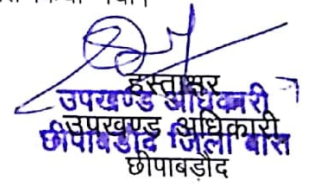 हस्ताक्षर
उपखण्ड अधिकारी
उपखण्ड अधिकारी
छीपाबड़ौद जिला बारां
छीपाबड़ौद